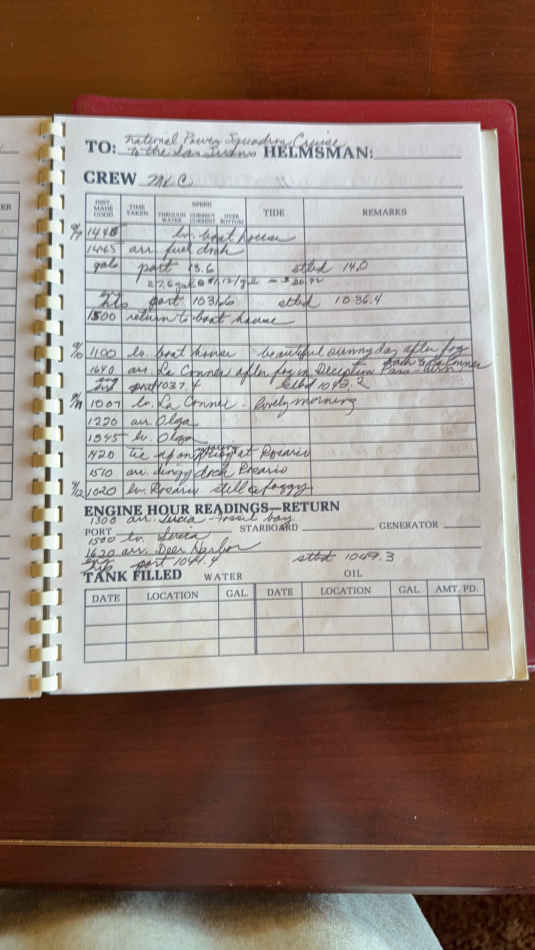 TO: National Power Squadron Cruise
to the San Juans HELMSMAN:
CREW M C
ER
DIST. MADE GOOD TIME TAKEN SPEED THROUGH WATER CORRECT CURRENT OVER BOTTOM TIDE REMARKS
9/7 1445 lv. boat house
1465 arr. fuel dock
gals port 13.6 stbd 14.0
27.6 gal @
port 1031.6 stbd 1036.4
1500 return to boat house
9/10 1100 lv. boat house beautiful sunny day after fog
1640 arr. La Conner after fog in Deception Pass
port 1037.4 stbd 1042.2
9/11 1007 lv. La Conner - lovely morning
1220 arr. Olga
1345 lv. Olga
1420 tie up on at Rosario
1510 arr. dingy dock Rosario
9/12 1020 lv. Rosario still foggy
ENGINE HOUR READINGS—RETURN
1300 arr. Sucia - Fossil bay
PORT STARBOARD GENERATOR
1500 lv. Sucia
1620 arr. Deer Harbor
port 1044.4 stbd 1049.3
TANK FILLED WATER OIL
DATE LOCATION GAL. DATE LOCATION GAL. AMT. PD.